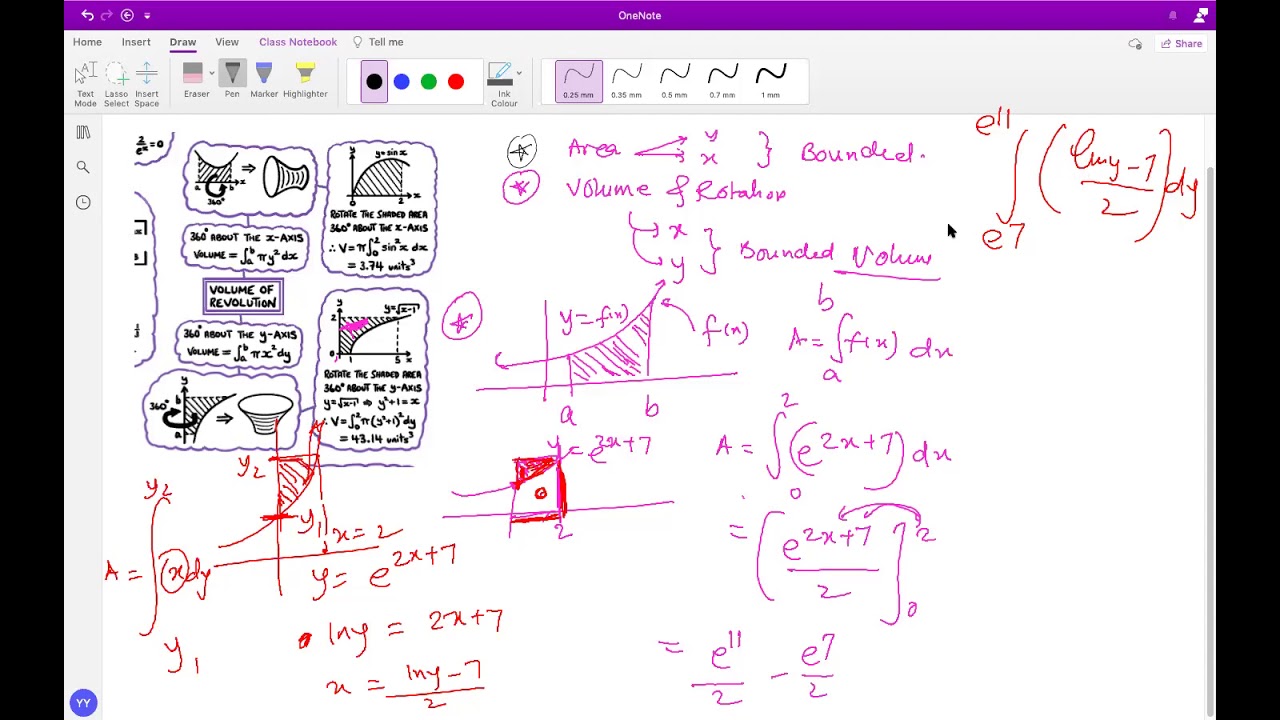 OneNote
Home Insert Draw View Class Notebook Tell me
Share
Text Mode
Lasso Select
Insert Space
Eraser
Pen
Marker
Highlighter
Ink Colour
0.25 mm
0.35 mm
0.5 mm
0.7 mm
1 mm
a b
360°
360° ABOUT THE X-AXIS
VOLUME = ∫ₐᵇ πy² dx
VOLUME OF
REVOLUTION
360° ABOUT THE Y-AXIS
VOLUME = ∫ₐᵇ πx² dy
y
b
360°
a
y
y=sinx
0 2 x
ROTATE THE SHADED AREA
360° ABOUT THE X-AXIS
∴ V = π∫₀² sin²x dx
= 3.74 units³
y
y=√x-1
2
0
1 5 x
ROTATE THE SHADED AREA
360° ABOUT THE Y-AXIS
y=√x-1 ⇒ y²+1=x
∴ V=∫₀² π(y²+1)² dy
= 43.14 units³
Area y x } Bounded.
Volume & Rotation
x y } Bounded Volume
y=f(x)
f(x)
a b
A = ∫ₐᵇ f(x) dx
y = e^2x+7
2
A = ∫₀² (e^2x+7) dx
= [e^2x+7 / 2]₀²
= e^11/2 - e^7/2
y2
y1
x=2
A = ∫_y1^y2 x dy
y = e^2x+7
lny = 2x+7
x = lny-7 / 2
∫_e7^e11 (lny-7 / 2) dy
YY